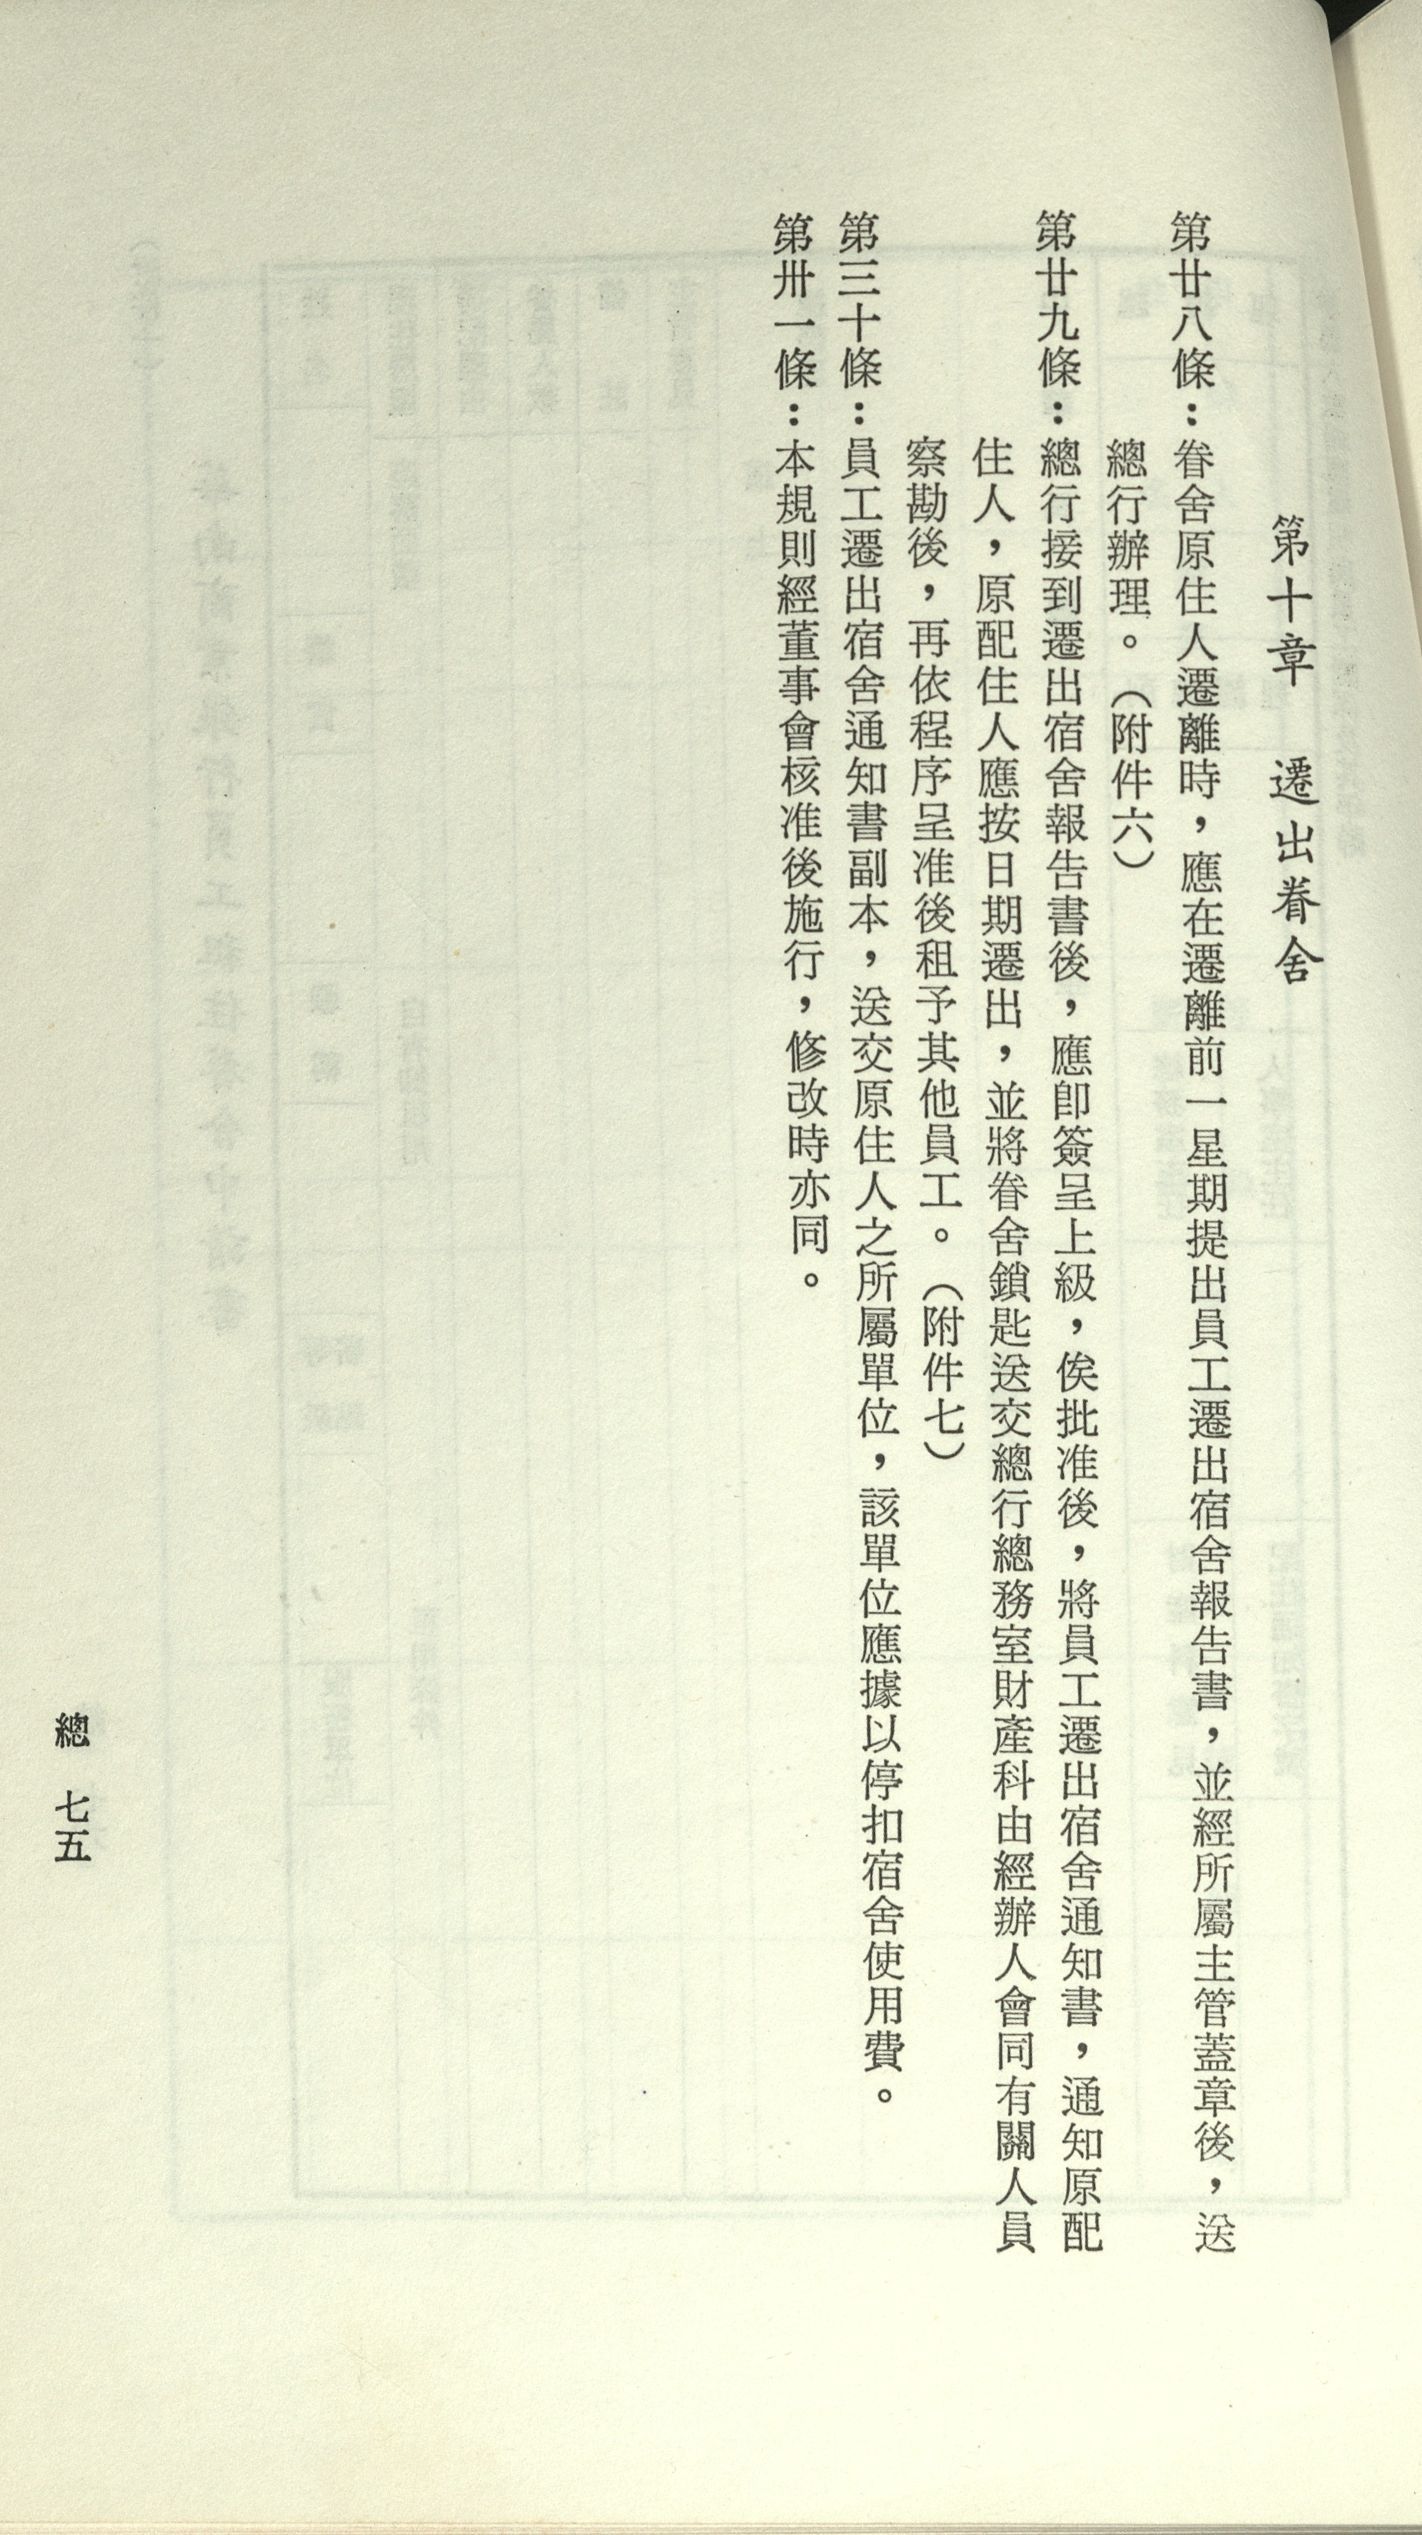 第十章　遷出眷舍
第廿八條：眷舍原住人遷離時，應在遷離前一星期提出員工遷出宿舍報告書，並經所屬主管蓋章後，送
總行辦理。（附件六）
第廿九條：總行接到遷出宿舍報告書後，應卽簽呈上級，俟批准後，將員工遷出宿舍通知書，通知原配
住人，原配住人應按日期遷出，並將眷舍鎖匙送交總行總務室財產科由經辦人會同有關人員
察勘後，再依程序呈准後租予其他員工。（附件七）
第三十條：員工遷出宿舍通知書副本，送交原住人之所屬單位，該單位應據以停扣宿舍使用費。
第卅一條：本規則經董事會核准後施行，修改時亦同。
總　七五